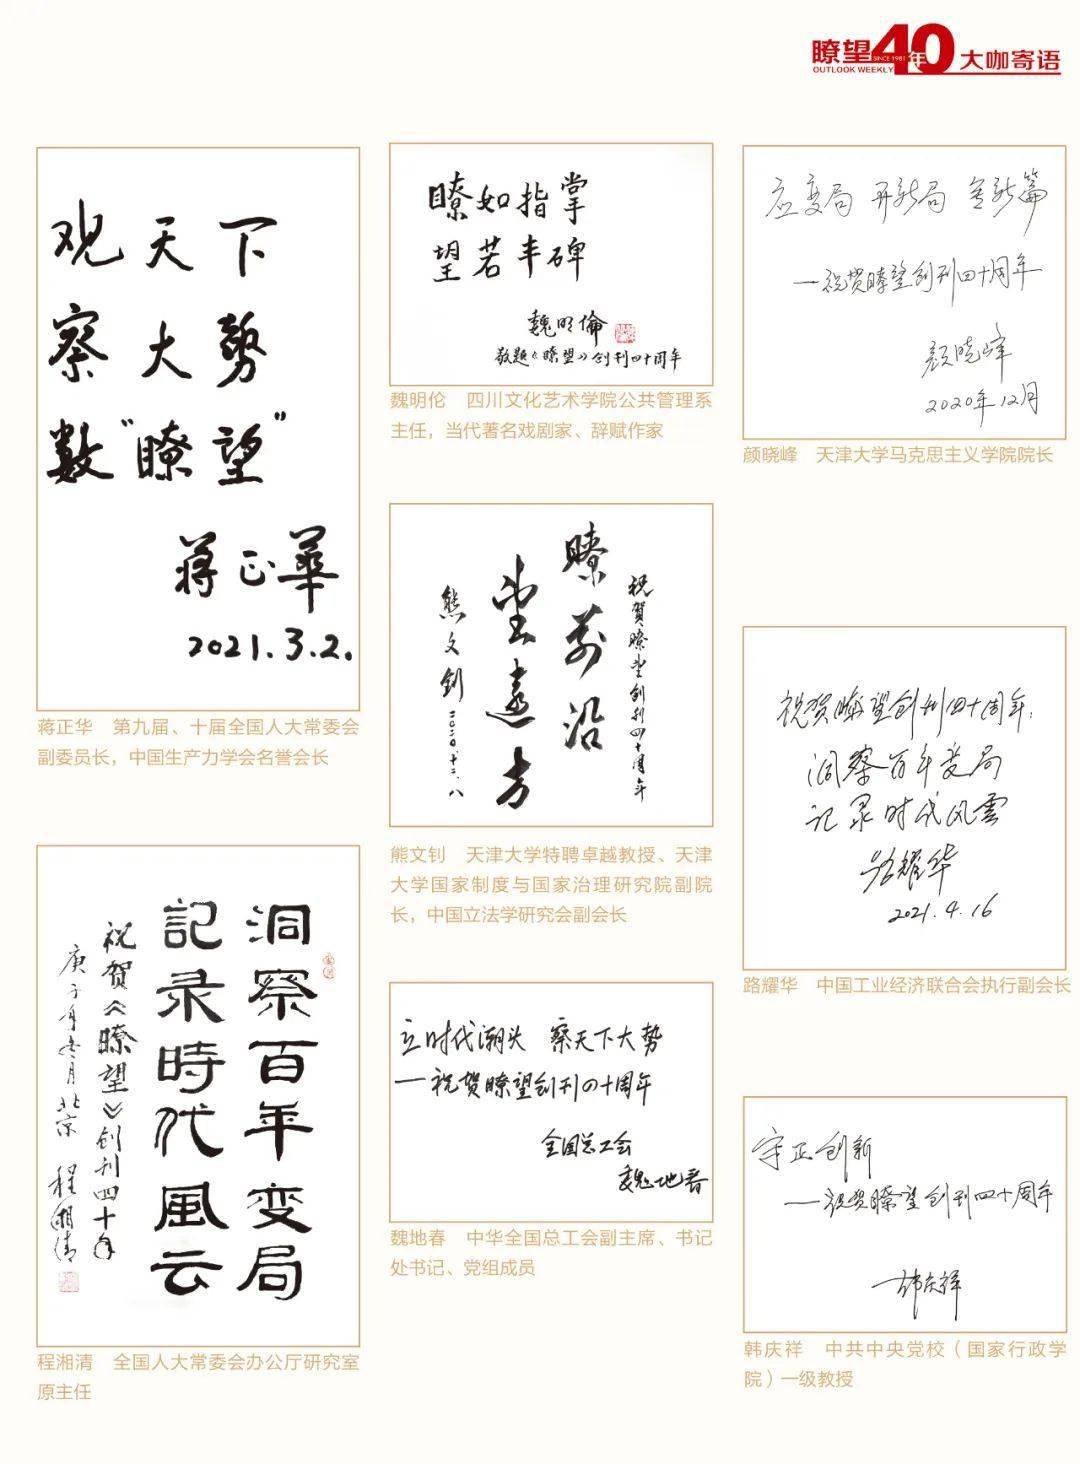 瞭望40年 大咖寄语
SINCE 1981
OUTLOOK WEEKLY
观天下
察大势
数“瞭望”
蒋正華
2021.3.2.
蒋正华 第九届、十届全国人大常委会
副委员长，中国生产力学会名誉会长
洞察百年变局
記录時代風云
祝贺《瞭望》创刊四十年
庚子年冬月北京 程湘清
程湘清 全国人大常委会办公厅研究室
原主任
瞭如指掌
望若丰碑
魏明倫
敬题《瞭望》创刊四十周年
魏明伦 四川文化艺术学院公共管理系
主任，当代著名戏剧家、辞赋作家
祝賀瞭望創刊四十周年
瞭前沿
望遠方
熊文钊 二〇二〇·十二·八
熊文钊 天津大学特聘卓越教授、天津
大学国家制度与国家治理研究院副院
长，中国立法学研究会副会长
立时代潮头 察天下大势
—祝贺瞭望创刊四十周年
全国总工会
魏地春
魏地春 中华全国总工会副主席、书记
处书记、党组成员
应变局 开新局 谱新篇
—祝贺瞭望创刊四十周年
颜晓峰
2020年12月
颜晓峰 天津大学马克思主义学院院长
祝贺瞭望创刊四十周年：
洞察百年变局
记录时代风雲
路耀华
2021.4.16
路耀华 中国工业经济联合会执行副会长
守正创新
—祝贺瞭望创刊四十周年
—韩庆祥
韩庆祥 中共中央党校（国家行政学
院）一级教授